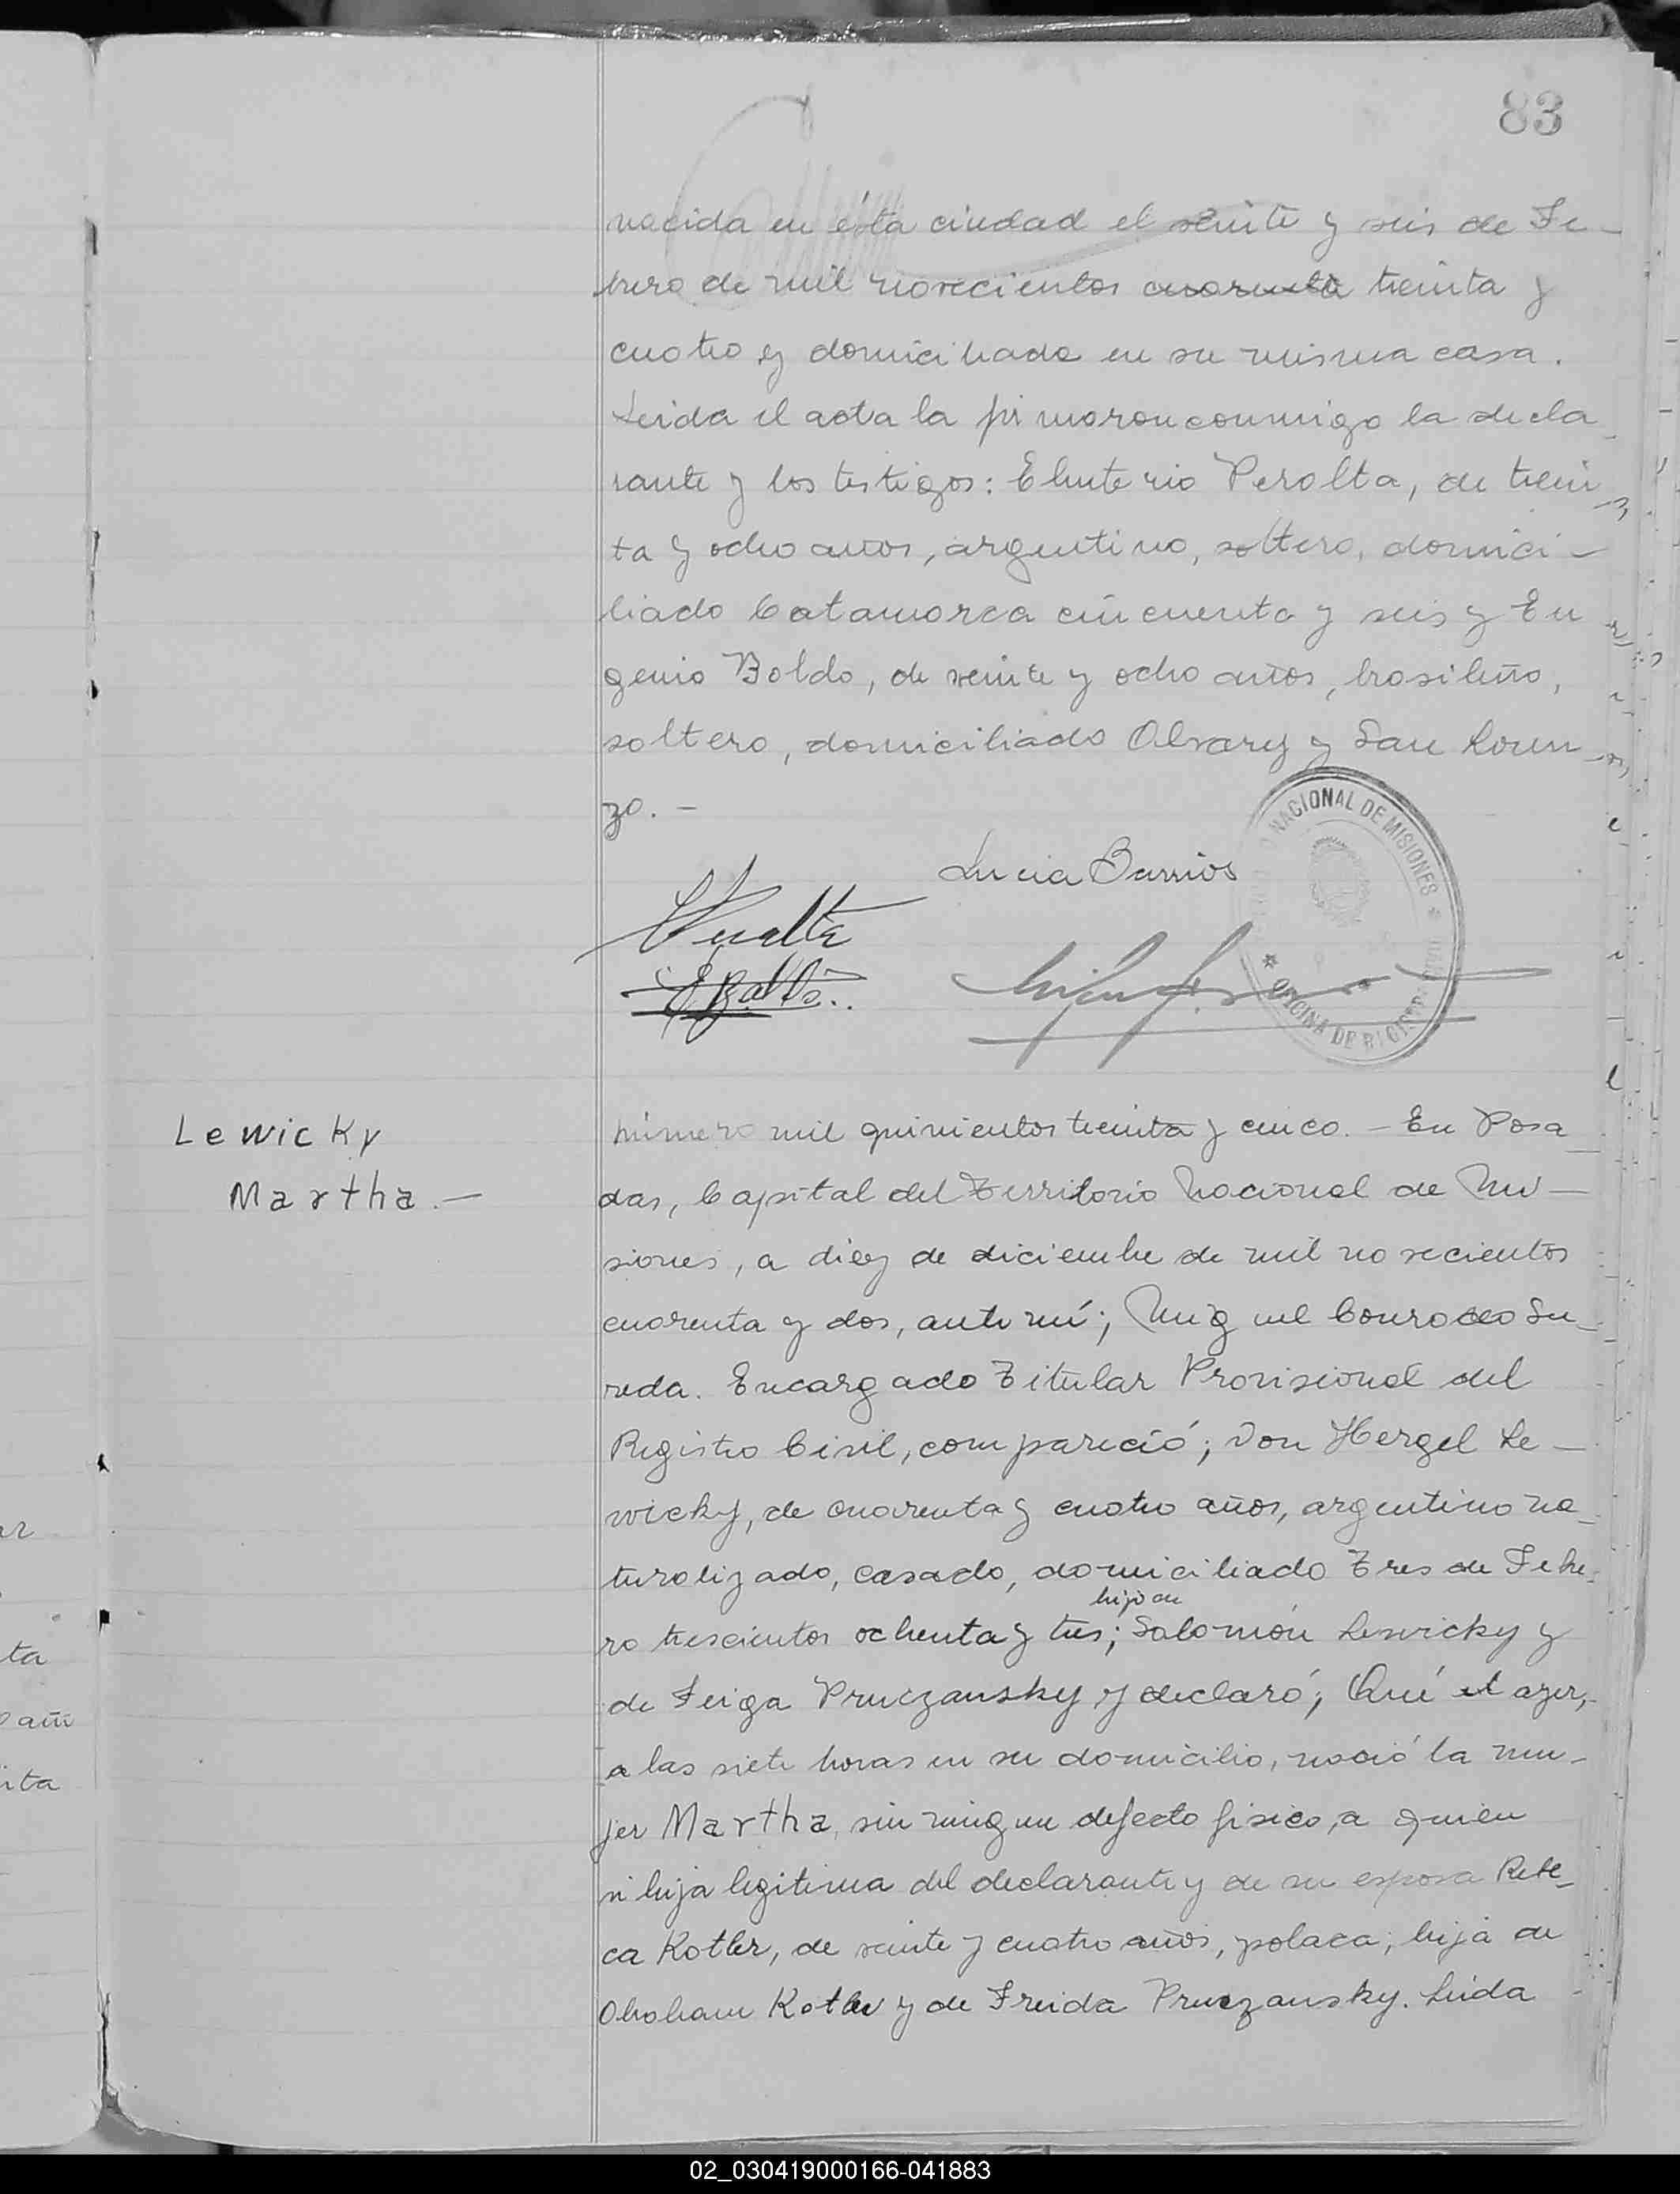 83
nacida en ésta ciudad el veinte y seis de Fe-
brero de mil novecientos cuarenta treinta y
cuatro y domiciliada en su misma casa.
Leida el acta la firmaron conmigo la decla-
rante y los testigos: Eleuterio Peralta, de trein-
ta y ocho años, argentino, soltero, domici-
liado Catamarca cincuenta y seis y Eu
genio Boldo, de veinte y ocho años, brasileño,
soltero, domiciliado Alvary y San Loren-
zo. -
NACIONAL DE MISIONES
Lucia Barrios
OFICINA DE REGISTRO
Lewicky
Martha. -
número mil quinientos treinta y cinco. - En Posa-
das, Capital del Territorio Nacional de Mi-
siones, a diez de diciembre de mil novecientos
cuarenta y dos, ante mí; Miguel Conrado Su-
reda. Encargado Titular Provisional del
Registro Civil, compareció; Don Hergel Le-
wicky, de cuarenta y cuatro años, argentino na-
turalizado, casado, domiciliado Tres de Febre-
hijo de
ro trescientos ochenta y tres; Salomón Lewicky y
de Feiga Pruczansky y declaró; Qué el ayer,
a las siete horas en su domicilio, nació la mu-
jer Martha, sin ningun defecto fisico, a quien
vi hija legitima del declarante y de su esposa Rebe-
ca Kotler, de veinte y cuatro años, polaca; hija de
Abraham Kotler y de Freida Pruczansky. Leida
ta
añi
ita
02_030419000166-041883